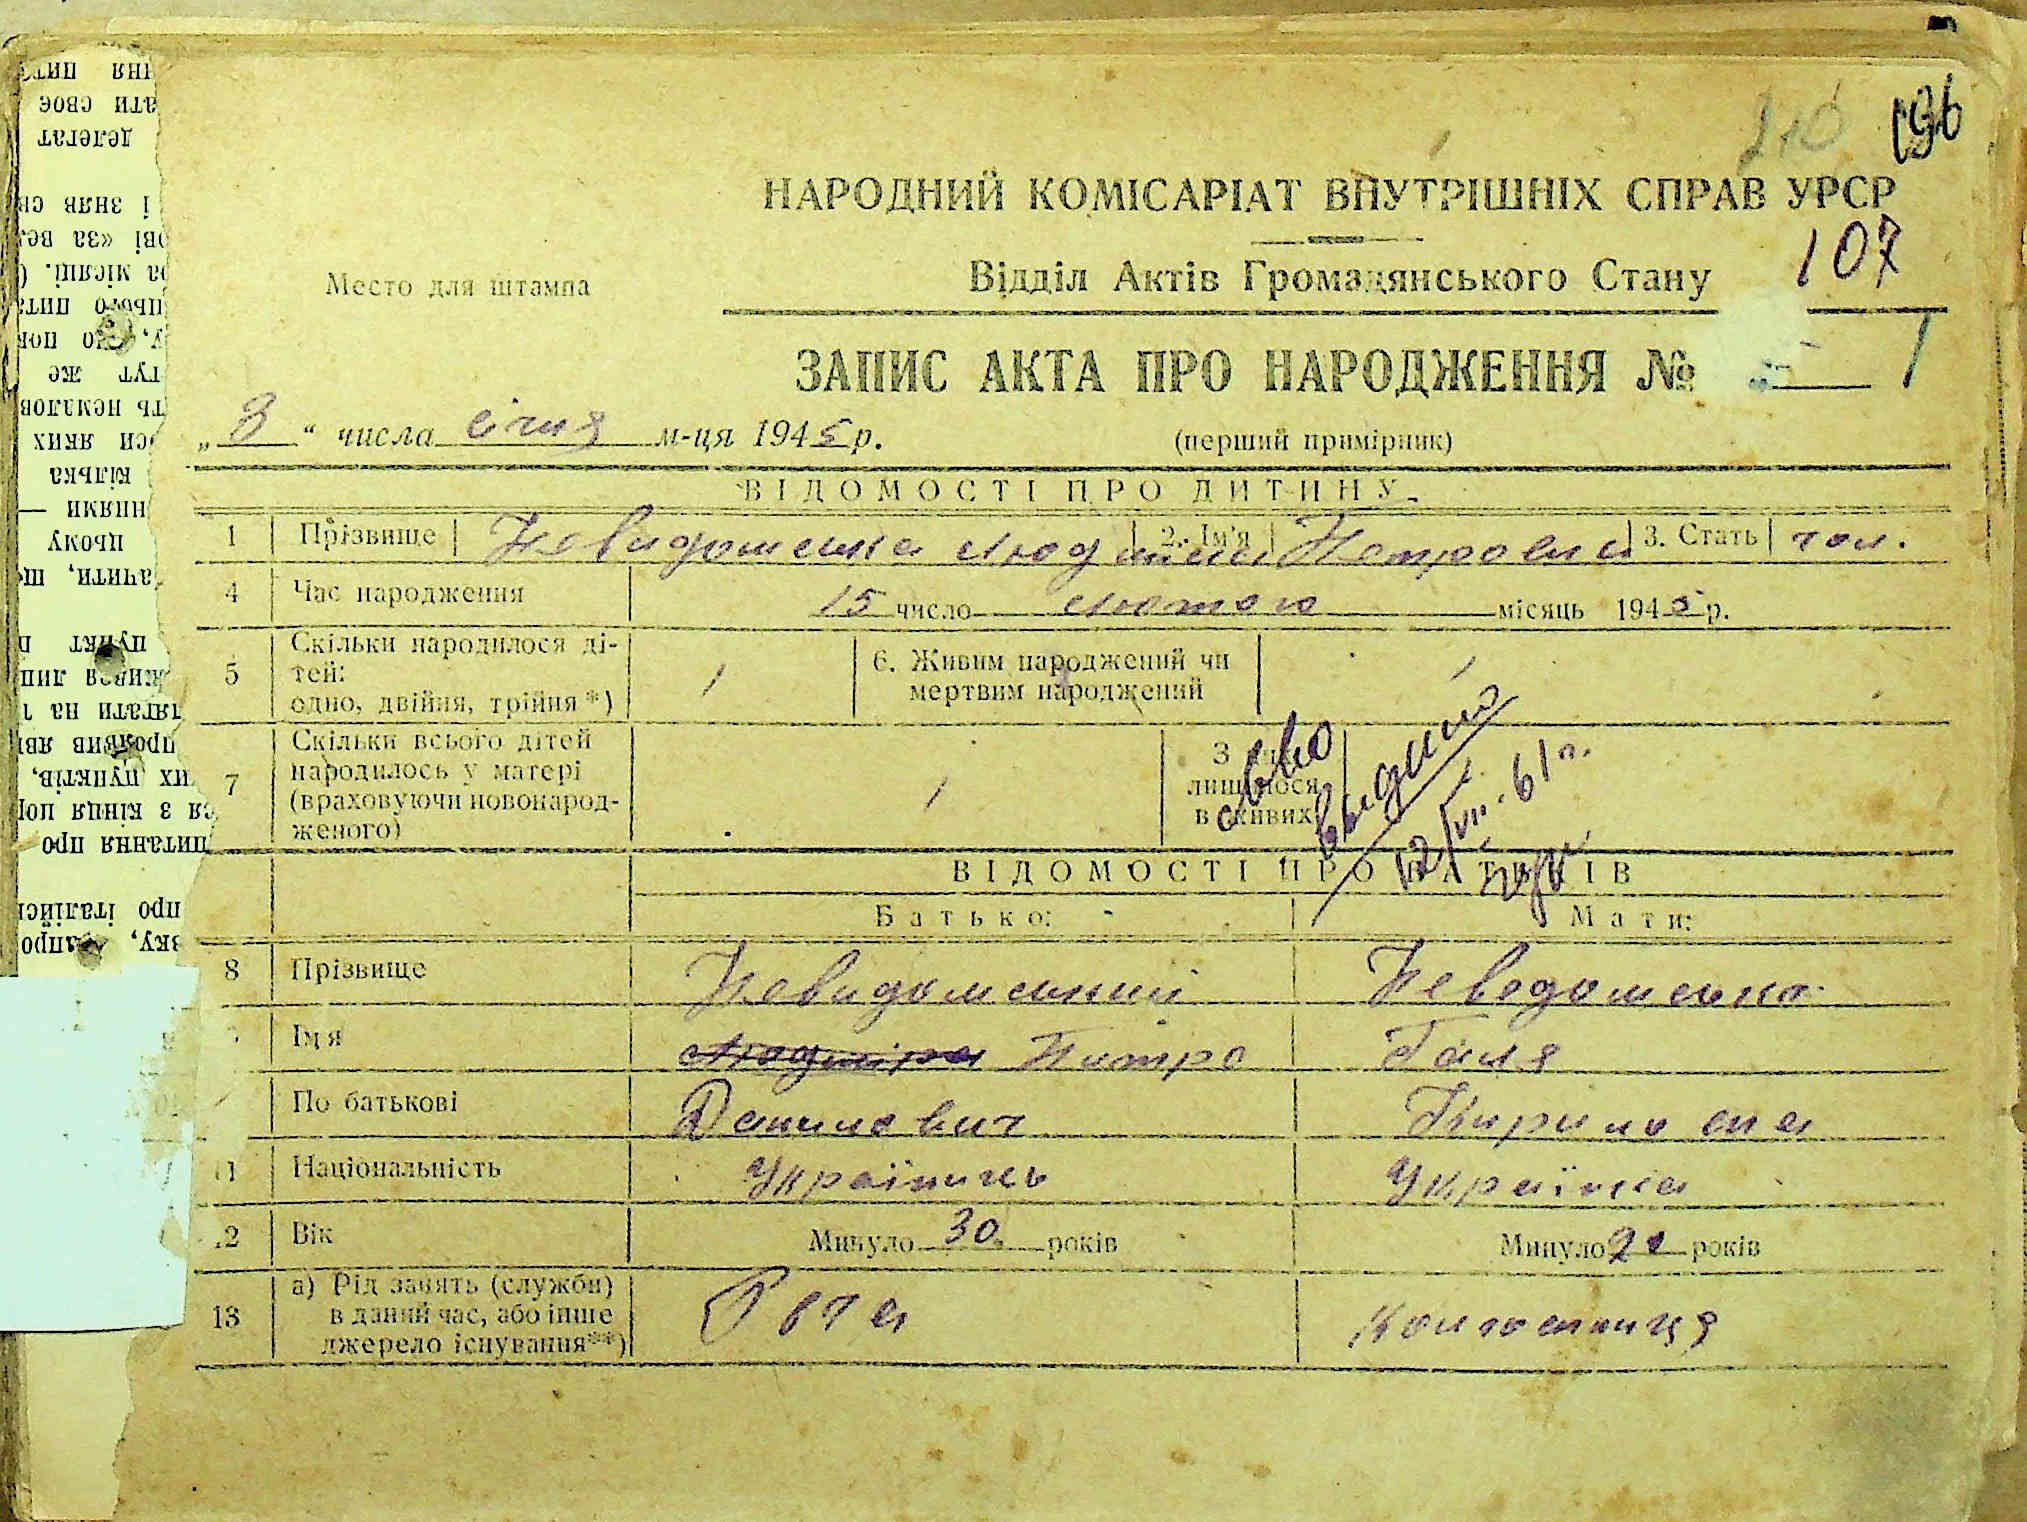 196
210
НАРОДНИЙ КОМІСАРІАТ ВНУТРІШНІХ СПРАВ УРСР
107
Место для штампа
Відділ Актів Громадянського Стану
ЗАПИС АКТА ПРО НАРОДЖЕННЯ № 1
„ 8 “ числа січня м-ця 1945 р. (перший примірник)
ВІДОМОСТІ ПРО ДИТИНУ
1 Прізвище Невидомська 2. Ім'я Людмила Петровна 3. Стать
4 Час народження 15 число лютого місяць 1945 р.
5 Скільки народилося ді-
тей:
одно, двійня, трійня*) 1
6. Живим народжений чи
мертвим народжений 1
7 Скільки всього дітей
народилось у матері
(враховуючи новонарод-
женого) 1
З них
лишилося
в живих
св-во
выдано
12/VII-61 г.
ВІДОМОСТІ ПРО БАТЬКІВ
Батько: Мати:
8 Прізвище Невидомський Неведомська
Імя Петро Галя
По батькові Данилович Кириловна
11 Національність Українець Українка
12 Вік Минуло 30 років Минуло років
13 а) Рід занять (служби)
в даний час, або інше
джерело існування**) РВЧА колгоспниця
ння пит
ати своє
делегат
і зняв св
ові «за вел
ра місяці. (
цього пита
у, що пов
тут же
ть немалов
оси яких
кілька
нями —
цьому
ачити, щ
пункт п
жився лип
тягати на 1
проявив яви
их пунктів,
ся з кінця пор
питання про
про італійсь
зку, запро